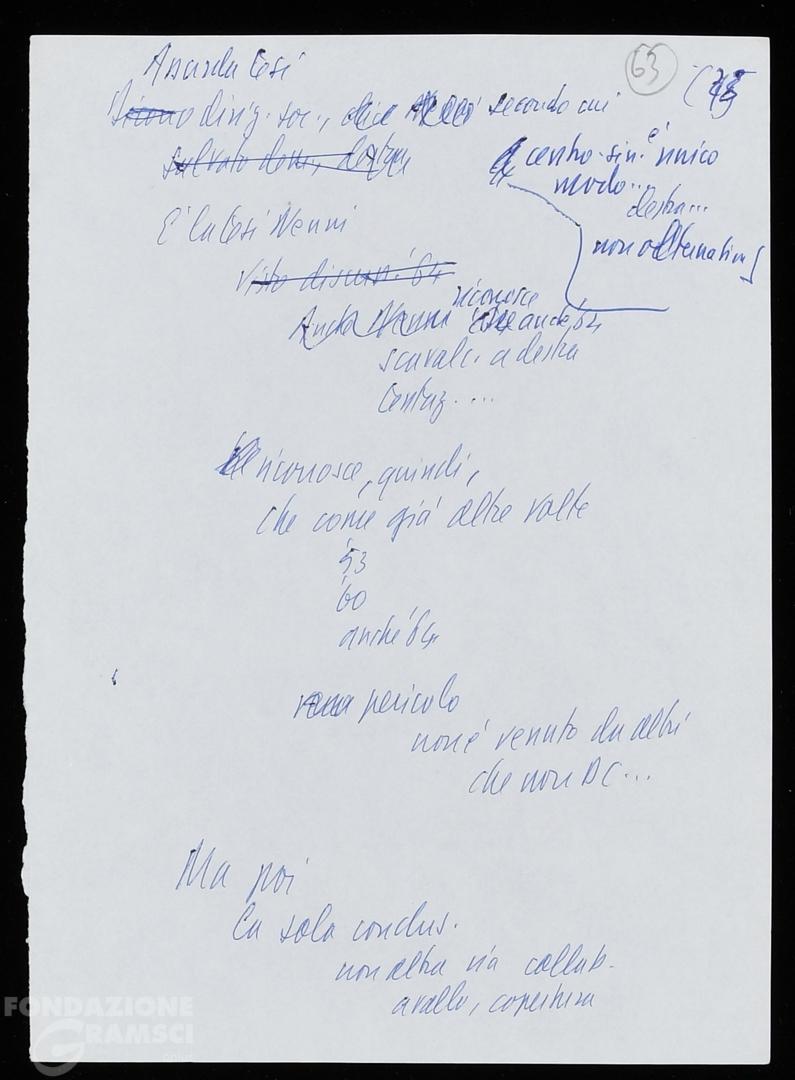 Assurda tesi
63
dirig. soc., secondo cui
centro-sin. è unico
modo...
destra...
non alternativa
È la tesi Nenni
Visto discuss. '64
riconosce
Anche Nenni che anche '64
scavalc. a destra
centriz....
riconosce, quindi,
che come già altre volte
'53
'60
anche '64
pericolo
non è venuto da altri
che non DC...
Ma poi
la sola conclus.
non altra via collab.
avallo, copertura
FONDAZIONE
GRAMSCI
onlus